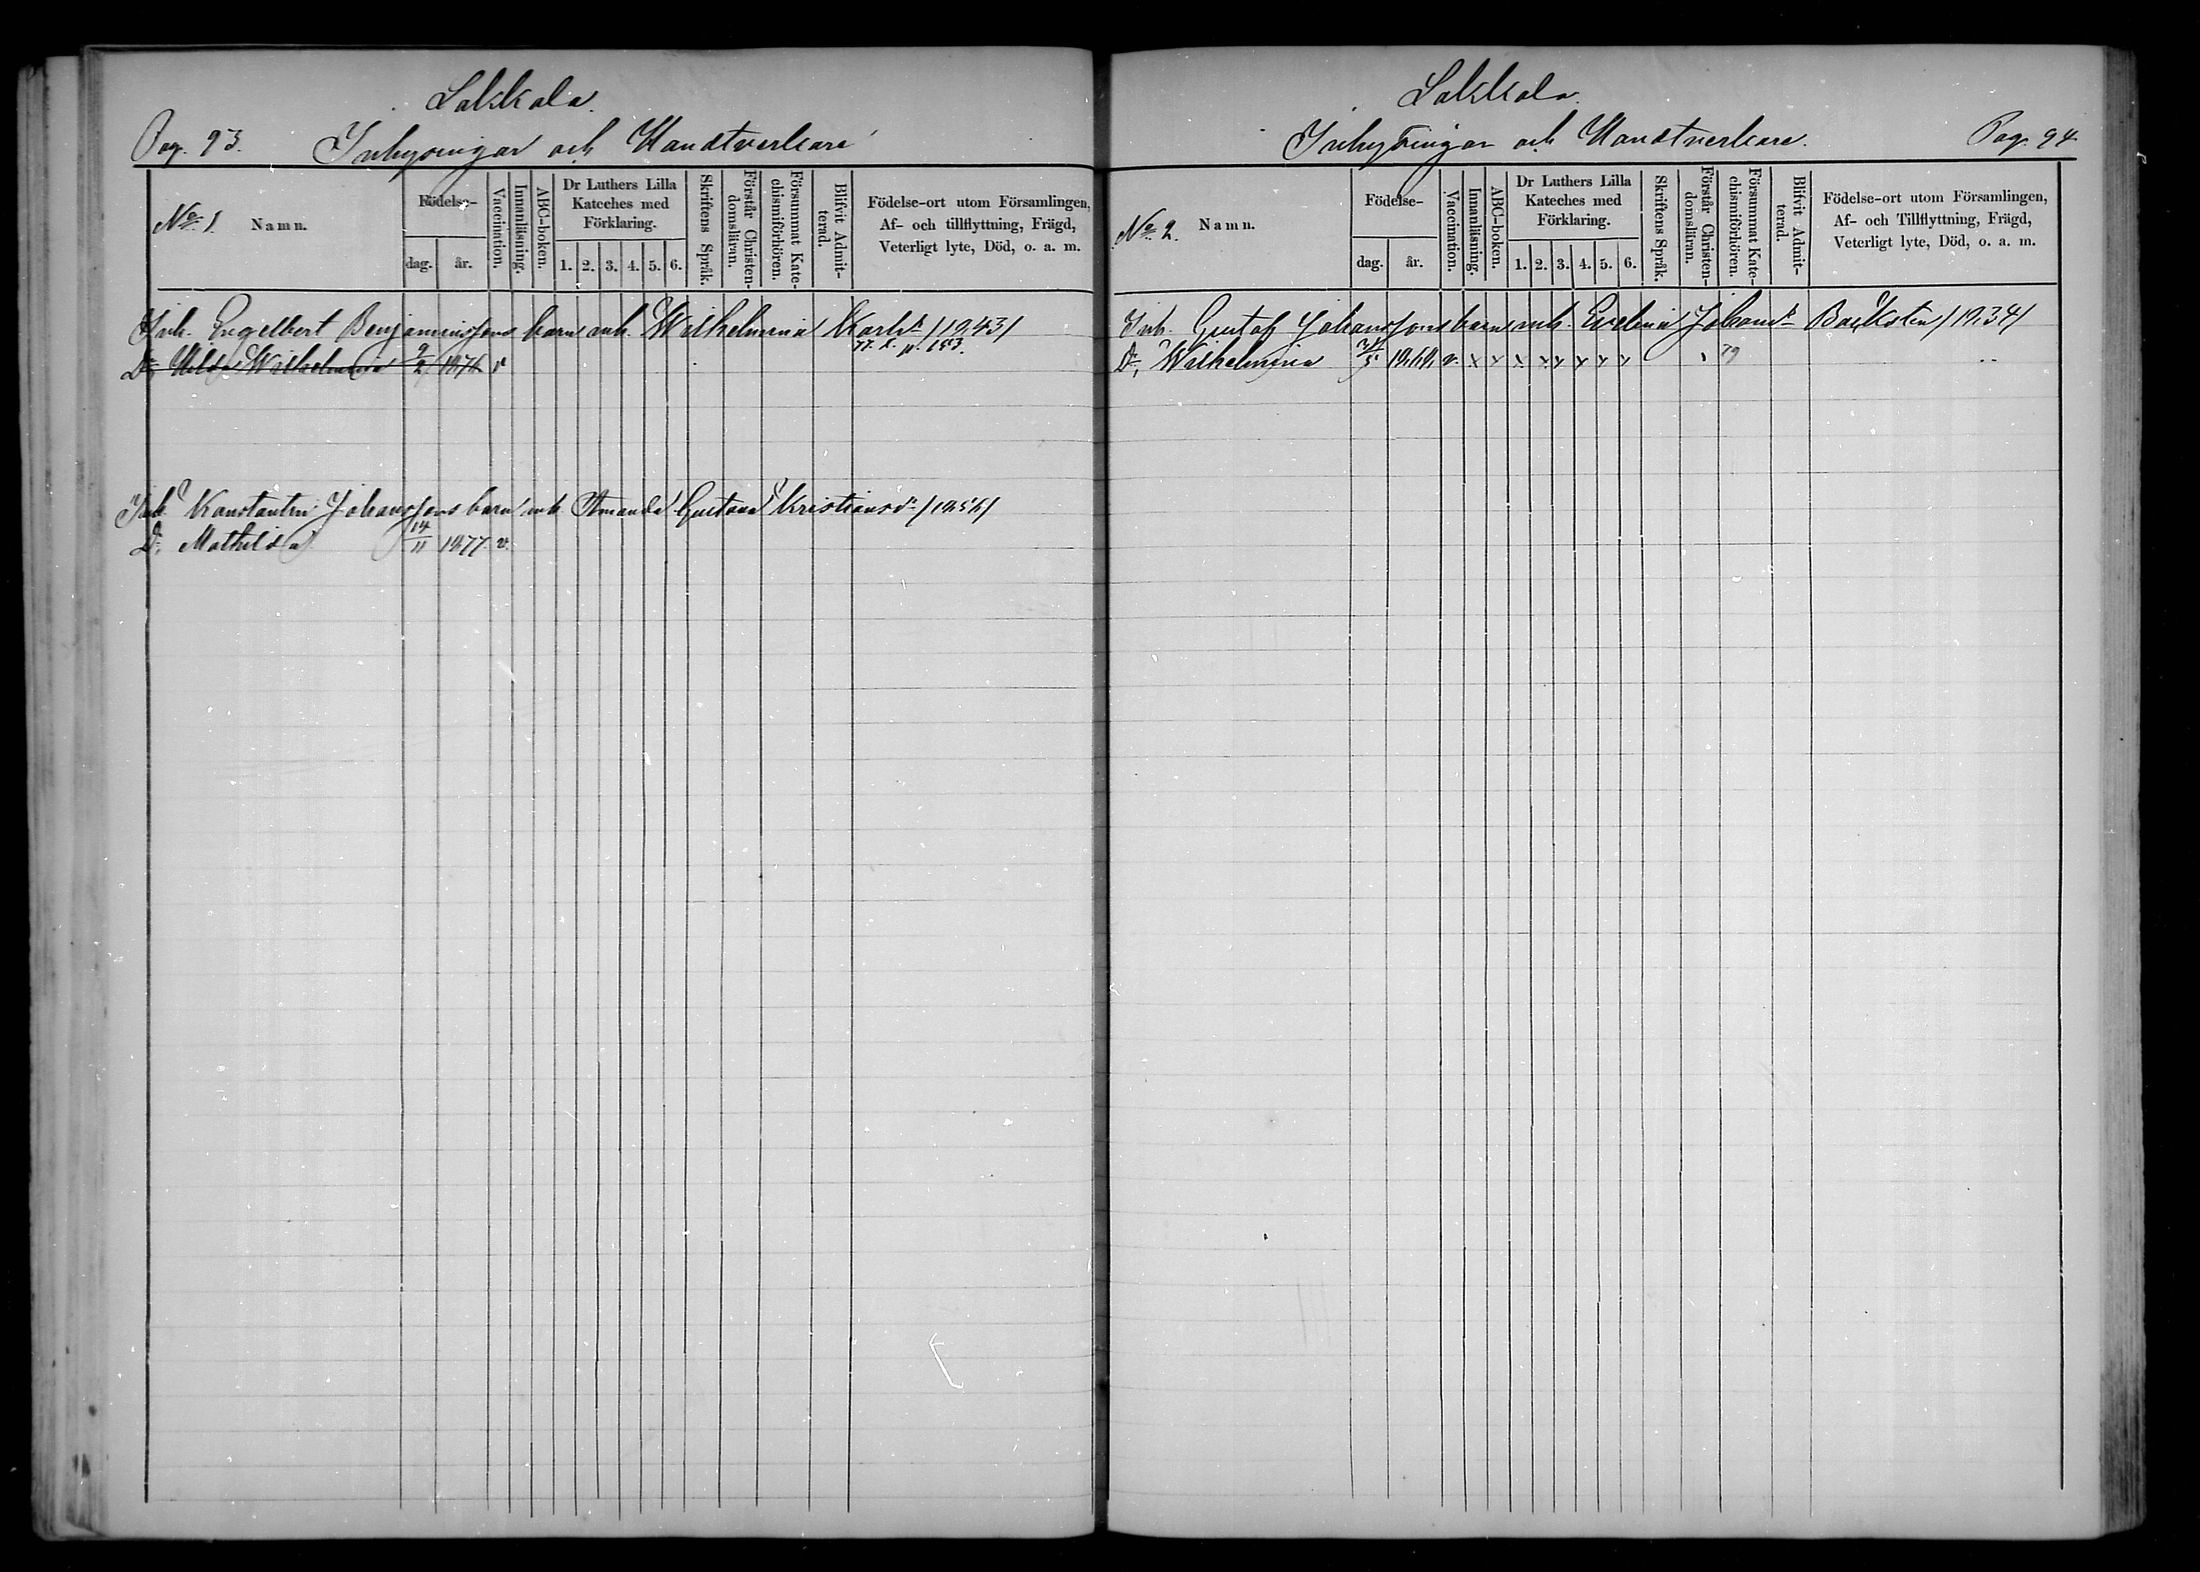 Lakkala.
Pag. 93. Inhysingar och Handtverkare
No 1. Namn.
Födelse-
dag. år.
Vaccination.
Innanläsning.
ABC-boken.
Dr Luthers Lilla
Kateches med
Förklaring.
1. 2. 3. 4. 5. 6.
Skriftens Språk.
Förstår Christen-
domsläran.
Försummat Kate-
chismiförhören.
Blifvit Admit-
terad.
Födelse-ort utom Församlingen,
Af- och tillflyttning, Frägd,
Veterligt lyte, Död, o. a. m.
Inh. Engelbert Benjaminssons barn mh. Wilhelmina Karlsd. /1843/
Dr, Hilda Wilhelmina 1876 v 77. p. 153.
Inh. Konstantin Johanssons barn mh. Amanda Gustava Kristiansdr /1856/
Dr, Mathilda 14/11 1877 v.
Lakkala.
Inhysingar och Handtverkare. Pag. 94.
No 2. Namn.
Födelse-
dag. år.
Vaccination.
Innanläsning.
ABC-boken.
Dr Luthers Lilla
Kateches med
Förklaring.
1. 2. 3. 4. 5. 6.
Skriftens Språk.
Förstår Christen-
domsläran.
Försummat Kate-
chismiförhören.
Blifvit Admit-
terad.
Födelse-ort utom Församlingen,
Af- och Tillflyttning, Frägd,
Veterligt lyte, Död, o. a. m.
Inh. Gustaf Johanssons barn mh. Evelina Johansdr Backsten /1834/
Dr, Wilhelmina v. x x x x x x x x 79